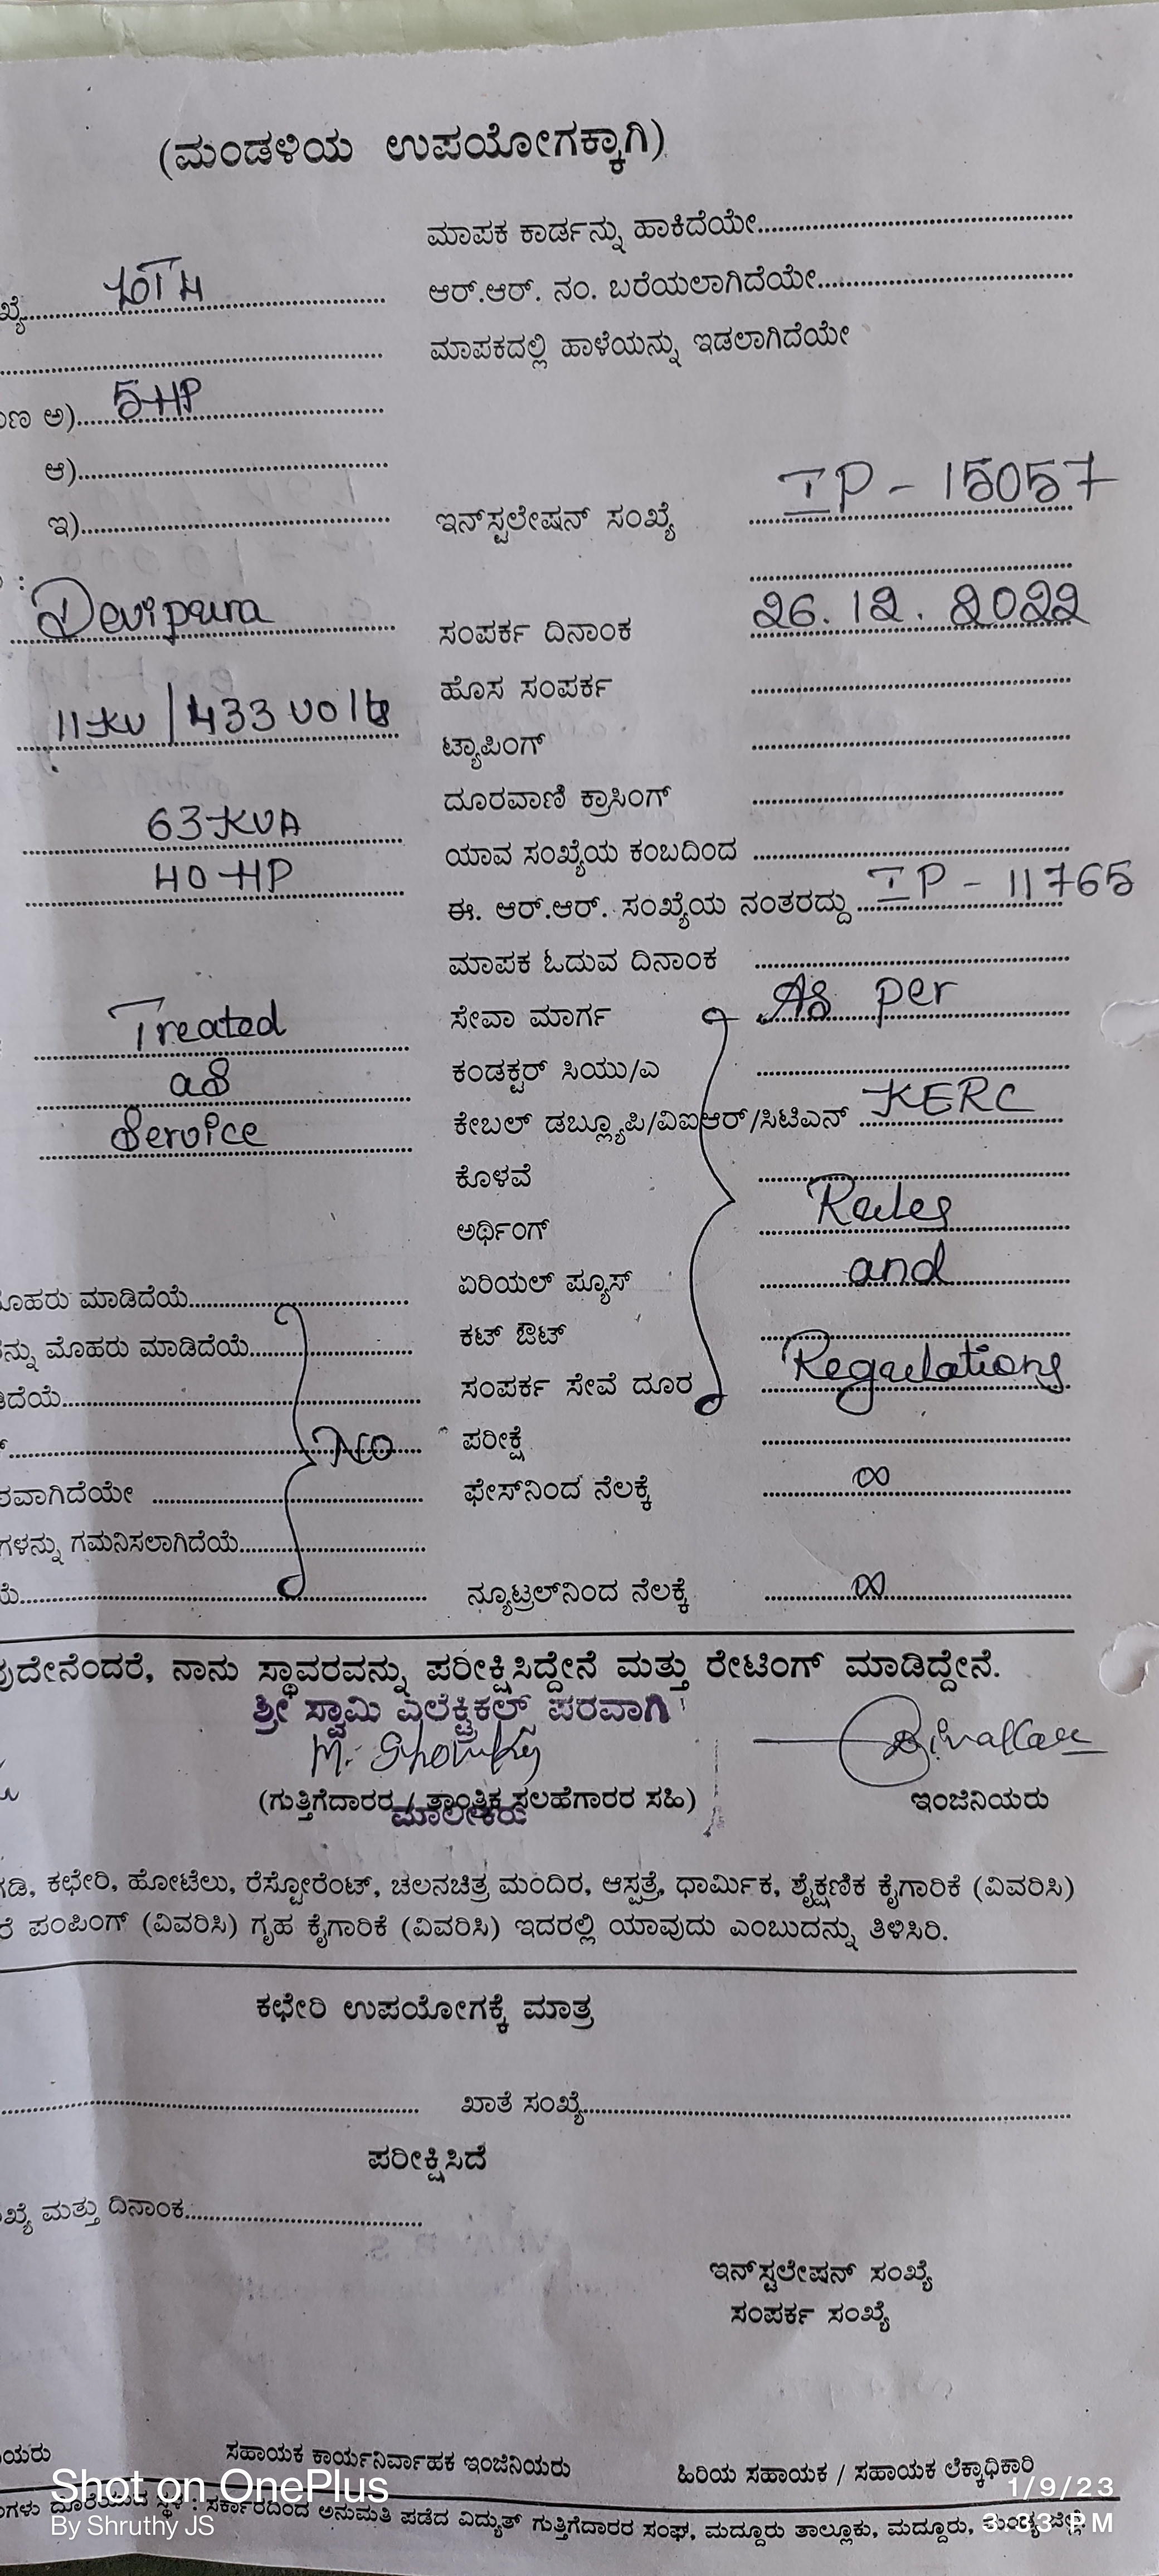 (ಮಂಡಳಿಯ ಉಪಯೋಗಕ್ಕಾಗಿ)
ಮಾಪಕ ಕಾರ್ಡನ್ನು ಹಾಕಿದೆಯೇ
ಆರ್.ಆರ್. ನಂ. ಬರೆಯಲಾಗಿದೆಯೇ
ಮಾಪಕದಲ್ಲಿ ಹಾಳೆಯನ್ನು ಇಡಲಾಗಿದೆಯೇ
ಅ) 5 HP
ಆ)
ಇ)
ಇನ್‌ಸ್ಟಲೇಷನ್ ಸಂಖ್ಯೆ IP - 15057
Devipura
ಸಂಪರ್ಕ ದಿನಾಂಕ 26.12.2022
ಹೊಸ ಸಂಪರ್ಕ
11KV / 433 Volts
ಟ್ಯಾಪಿಂಗ್
ದೂರವಾಣಿ ಕ್ರಾಸಿಂಗ್
63 KVA
ಯಾವ ಸಂಖ್ಯೆಯ ಕಂಬದಿಂದ
40 HP
ಈ. ಆರ್.ಆರ್. ಸಂಖ್ಯೆಯ ನಂತರದ್ದು IP - 11765
ಮಾಪಕ ಓದುವ ದಿನಾಂಕ
Treated
ಸೇವಾ ಮಾರ್ಗ As per
as
ಕಂಡಕ್ಟರ್ ಸಿಯು/ಎ
Service
ಕೇಬಲ್ ಡಬ್ಲ್ಯೂಪಿ/ವಿಐಆರ್/ಸಿಟಿಎನ್ KERC
ಕೊಳವೆ
ಅರ್ಥಿಂಗ್ Rules
ಏರಿಯಲ್ ಫ್ಯೂಸ್ and
ಮಾಡಿದೆಯೆ
ಕಟ್ ಔಟ್
ಮೊಹರು ಮಾಡಿದೆಯೆ
ಸಂಪರ್ಕ ಸೇವೆ ದೂರ Regulations
No
ಪರೀಕ್ಷೆ
ಫೇಸ್‌ನಿಂದ ನೆಲಕ್ಕೆ ∞
ಗಮನಿಸಲಾಗಿದೆಯೆ
ನ್ಯೂಟ್ರಲ್‌ನಿಂದ ನೆಲಕ್ಕೆ ∞
ನಾನು ಸ್ಥಾವರವನ್ನು ಪರೀಕ್ಷಿಸಿದ್ದೇನೆ ಮತ್ತು ರೇಟಿಂಗ್ ಮಾಡಿದ್ದೇನೆ.
ಶ್ರೀ ಸ್ವಾಮಿ ಎಲೆಕ್ಟ್ರಿಕಲ್ಸ್ ಪರವಾಗಿ
(ಗುತ್ತಿಗೆದಾರರ / ತಾಂತ್ರಿಕ ಸಲಹೆಗಾರರ ಸಹಿ)
ಇಂಜಿನಿಯರು
ಮಾಲೀಕರು
ಕಛೇರಿ, ಹೋಟೆಲು, ರೆಸ್ಟೋರೆಂಟ್, ಚಲನಚಿತ್ರ ಮಂದಿರ, ಆಸ್ಪತ್ರೆ, ಧಾರ್ಮಿಕ, ಶೈಕ್ಷಣಿಕ ಕೈಗಾರಿಕೆ (ವಿವರಿಸಿ)
ಪಂಪಿಂಗ್ (ವಿವರಿಸಿ) ಗೃಹ ಕೈಗಾರಿಕೆ (ವಿವರಿಸಿ) ಇದರಲ್ಲಿ ಯಾವುದು ಎಂಬುದನ್ನು ತಿಳಿಸಿರಿ.
ಕಛೇರಿ ಉಪಯೋಗಕ್ಕೆ ಮಾತ್ರ
ಖಾತೆ ಸಂಖ್ಯೆ
ಪರೀಕ್ಷಿಸಿದೆ
ಮತ್ತು ದಿನಾಂಕ
ಇನ್‌ಸ್ಟಲೇಷನ್ ಸಂಖ್ಯೆ
ಸಂಪರ್ಕ ಸಂಖ್ಯೆ
ಸಹಾಯಕ ಕಾರ್ಯನಿರ್ವಾಹಕ ಇಂಜಿನಿಯರು
ಹಿರಿಯ ಸಹಾಯಕ / ಸಹಾಯಕ ಲೆಕ್ಕಾಧಿಕಾರಿ
ದೊರೆಯುವ ಸ್ಥಳ : ಸರ್ಕಾರದಿಂದ ಅನುಮತಿ ಪಡೆದ ವಿದ್ಯುತ್ ಗುತ್ತಿಗೆದಾರರ ಸಂಘ, ಮದ್ದೂರು ತಾಲ್ಲೂಕು, ಮದ್ದೂರು, ಮಂಡ್ಯ ಜಿಲ್ಲೆ
Shot on OnePlus
By Shruthy JS
1/9/23
3:33 PM